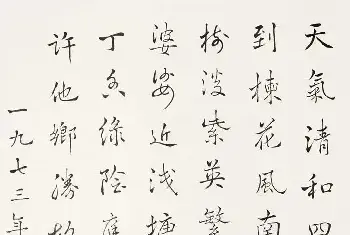 天氣清和四
到楝花風南
樹紫英繁
婆娑近淺
丁香綠陰庭
許他鄉勝
一九七三年